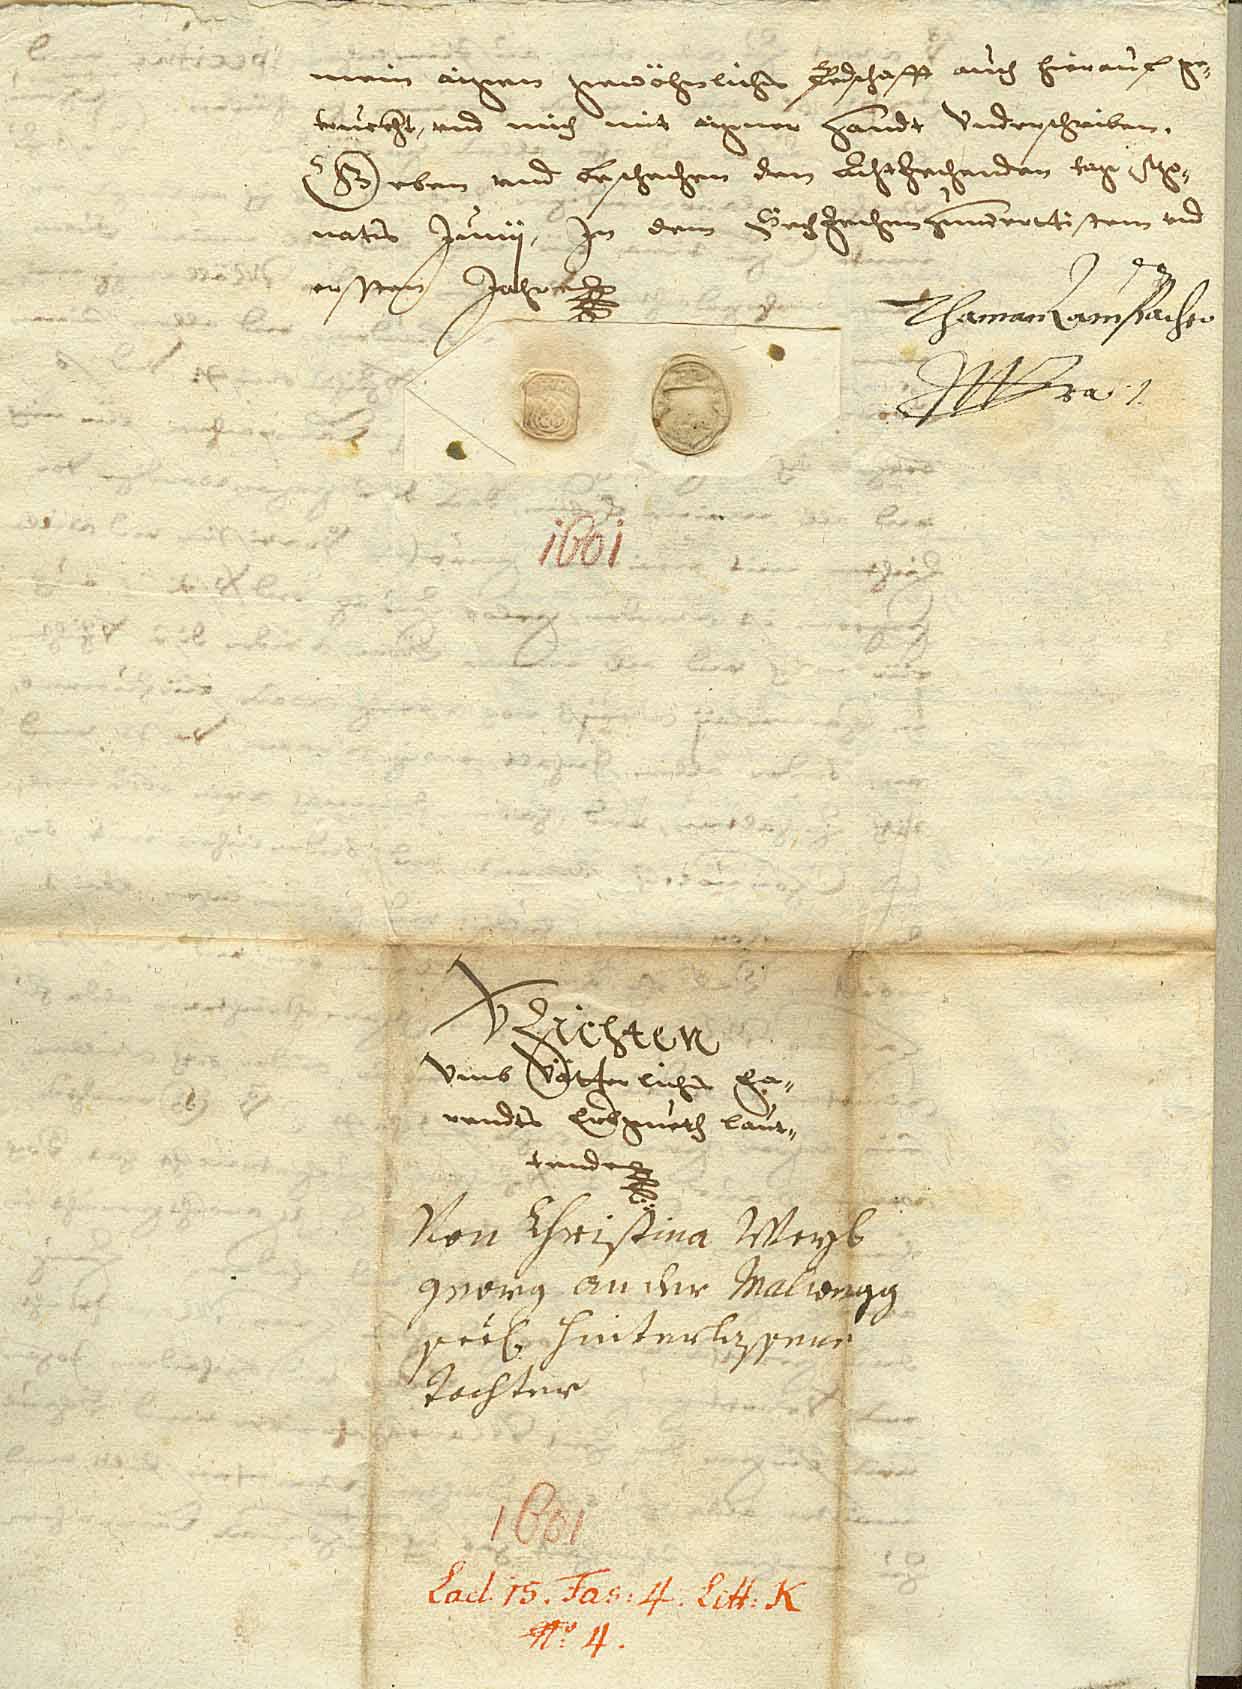 mein aigen gewöhnlichs Pedschafft auch hierauf ge-
truckht, und mich mit aigner Handt Underschriben.
Geben und beschechen den Achtzechenden tag Mo-
natts Junij, In dem Sechzechenhundertisten und
ersten Jahre
Thaman
1601
VZichten
Umb Vätterlichs Ha-
rendts Erbgueth laut-
tende
Von Christina Weyl:
georg an der Malwegg
seel: hinterlassene
Tochter
1601
Lad. 15. Fas: 4. Litt: K
No: 4.